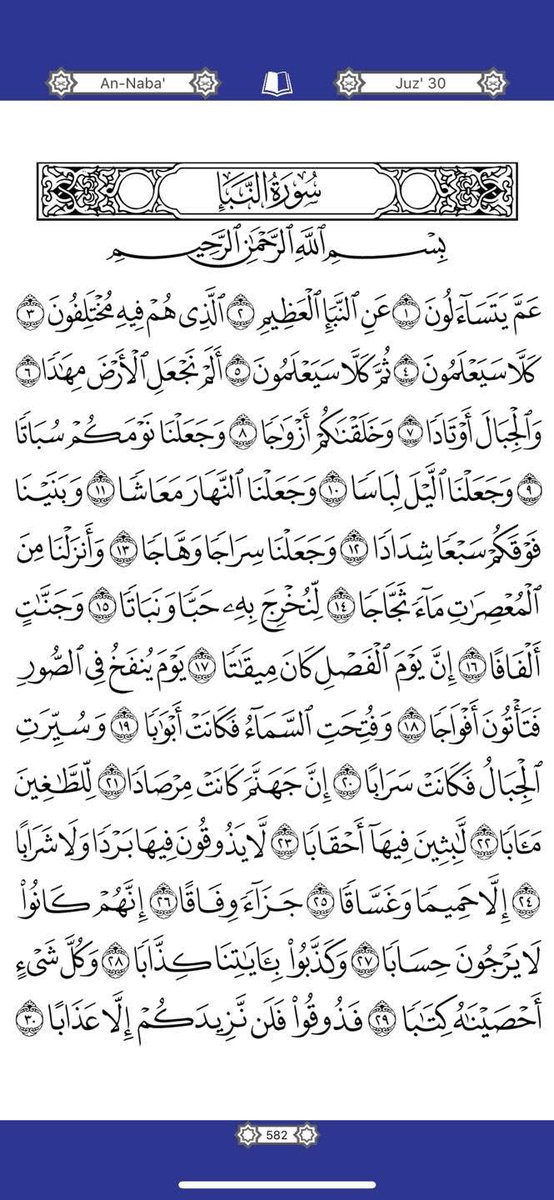 An-Naba' Juz' 30
سُورَةُ النَّبَإِ
بِسْمِ اللَّهِ الرَّحْمَٰنِ الرَّحِيمِ
عَمَّ يَتَسَآءَلُونَ ١ عَنِ ٱلنَّبَإِ ٱلْعَظِيمِ ٢ ٱلَّذِى هُمْ فِيهِ مُخْتَلِفُونَ ٣
كَلَّا سَيَعْلَمُونَ ٤ ثُمَّ كَلَّا سَيَعْلَمُونَ ٥ أَلَمْ نَجْعَلِ ٱلْأَرْضَ مِهَٰدًا ٦
وَٱلْجِبَالَ أَوْتَادًا ٧ وَخَلَقْنَٰكُمْ أَزْوَٰجًا ٨ وَجَعَلْنَا نَوْمَكُمْ سُبَاتًا
٩ وَجَعَلْنَا ٱلَّيْلَ لِبَاسًا ١٠ وَجَعَلْنَا ٱلنَّهَارَ مَعَاشًا ١١ وَبَنَيْنَا
فَوْقَكُمْ سَبْعًا شِدَادًا ١٢ وَجَعَلْنَا سِرَاجًا وَهَّاجًا ١٣ وَأَنزَلْنَا مِنَ
ٱلْمُعْصِرَٰتِ مَآءً ثَجَّاجًا ١٤ لِّنُخْرِجَ بِهِۦ حَبًّا وَنَبَاتًا ١٥ وَجَنَّٰتٍ
أَلْفَافًا ١٦ إِنَّ يَوْمَ ٱلْفَصْلِ كَانَ مِيقَٰتًا ١٧ يَوْمَ يُنفَخُ فِى ٱلصُّورِ
فَتَأْتُونَ أَفْوَاجًا ١٨ وَفُتِحَتِ ٱلسَّمَآءُ فَكَانَتْ أَبْوَٰبًا ١٩ وَسُيِّرَتِ
ٱلْجِبَالُ فَكَانَتْ سَرَابًا ٢٠ إِنَّ جَهَنَّمَ كَانَتْ مِرْصَادًا ٢١ لِّلطَّٰغِينَ
مَـَٔابًا ٢٢ لَّٰبِثِينَ فِيهَآ أَحْقَابًا ٢٣ لَّا يَذُوقُونَ فِيهَا بَرْدًا وَلَا شَرَابًا
٢٤ إِلَّا حَمِيمًا وَغَسَّاقًا ٢٥ جَزَآءً وِفَاقًا ٢٦ إِنَّهُمْ كَانُوا۟
لَا يَرْجُونَ حِسَابًا ٢٧ وَكَذَّبُوا۟ بِـَٔايَٰتِنَا كِذَّابًا ٢٨ وَكُلَّ شَىْءٍ
أَحْصَيْنَٰهُ كِتَٰبًا ٢٩ فَذُوقُوا۟ فَلَن نَّزِيدَكُمْ إِلَّا عَذَابًا ٣٠
582